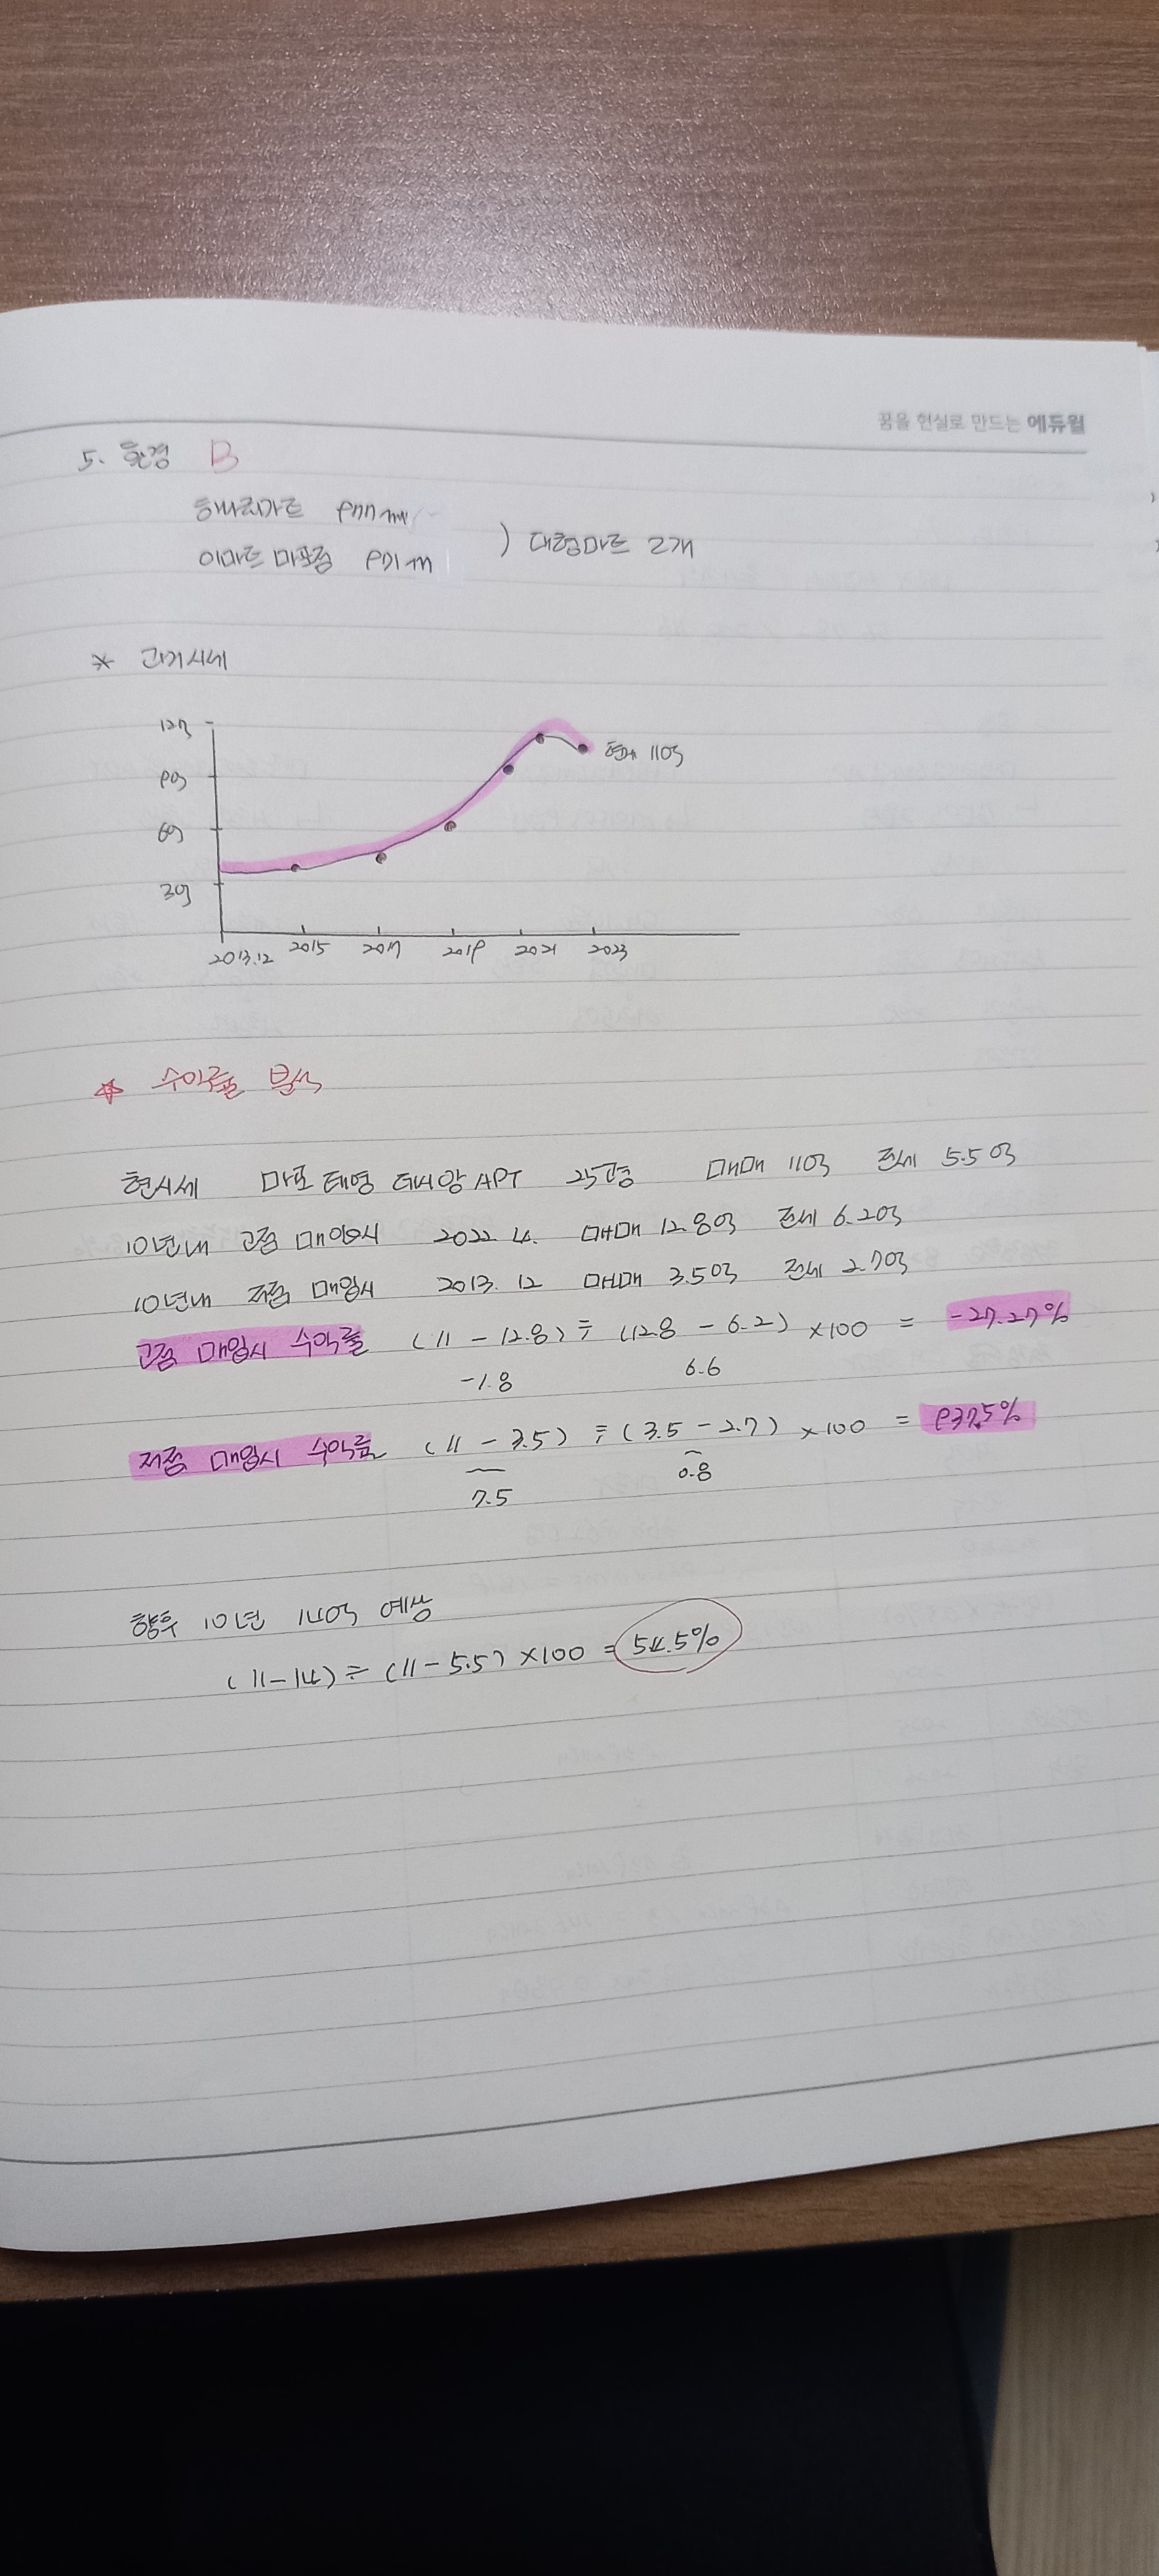 꿈을 현실로 만드는 에듀윌
5. 환경 B
홈버튼마트 977m
이마트 마포점 971m
) 대형마트 2개
* 과거시세
12억
9억
6억
3억
현재 11억
2013.12 2015 2017 2019 2021 2023
☆ 수익률 분석
현시세 마포 태영 데시앙 APT 25평형 매매 11억 전세 5.5억
10년내 고점 매입시 2022.4. 매매 12.8억 전세 6.2억
10년내 저점 매입시 2013.12 매매 3.5억 전세 2.7억
고점 매입시 수익률 (11 - 12.8) ÷ (12.8 - 6.2) ×100 = -27.27%
-1.8 6.6
저점 매입시 수익률 (11 - 3.5) ÷ (3.5 - 2.7) ×100 = 937.5%
7.5 0.8
향후 10년 14억 예상
(11-14) ÷ (11-5.5) ×100 = 54.5%